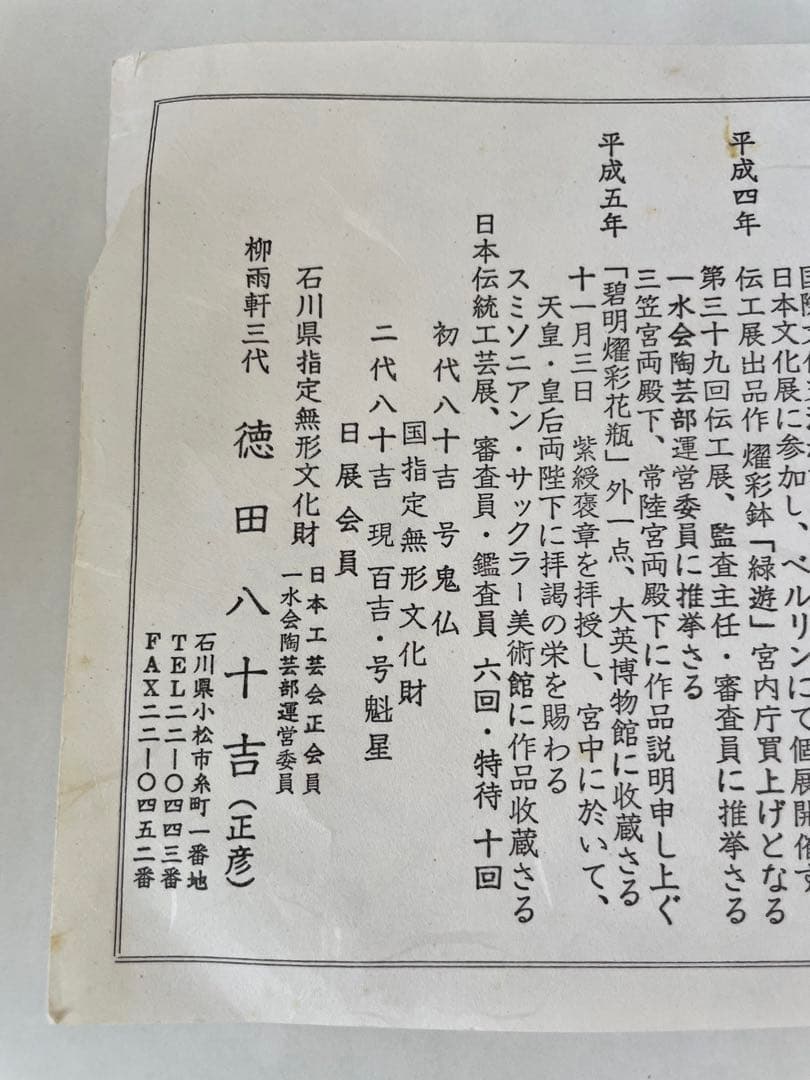 日本文化展に参加し、ベルリンにて個展開催す
平成四年 伝工展出品作 燿彩鉢「緑遊」宮内庁買上げとなる
第三十九回伝工展、監査主任・審査員に推挙さる
一水会陶芸部運営委員に推挙さる
三笠宮両殿下、常陸宮両殿下に作品説明申し上ぐ
平成五年 「碧明燿彩花瓶」外一点、大英博物館に収蔵さる
十一月三日 紫綬褒章を拝授し、宮中に於いて、
天皇・皇后両陛下に拝謁の栄を賜わる
スミソニアン・サックラー美術館に作品收蔵さる
日本伝統工芸展、審査員・鑑査員 六回・特待 十回
初代八十吉 号鬼仏
国指定無形文化財
二代八十吉 現 百吉・号魁星
日展会員
石川県指定無形文化財
日本工芸会正会員
一水会陶芸部運営委員
柳雨軒三代 徳田八十吉(正彦)
石川県小松市糸町一番地
TEL二二ー〇四四三番
FAX二二ー〇四五二番